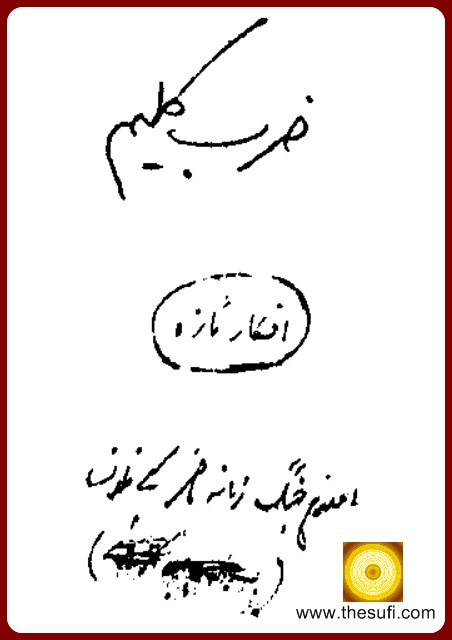 ضرب کلیم
افکار تازہ
اعلان جنگ زمانہ حاضر کے خلاف
www.thesufi.com